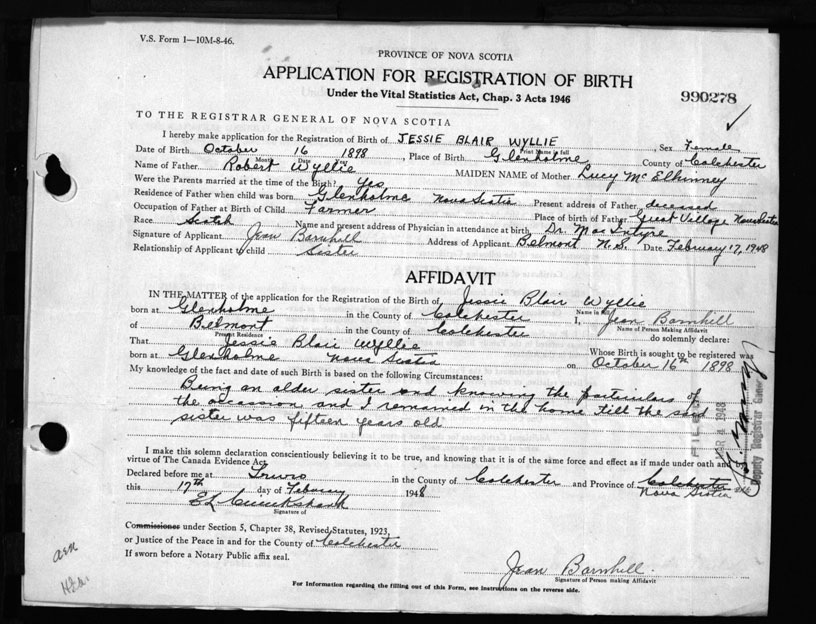 V.S. Form 1—10M-8-46.
PROVINCE OF NOVA SCOTIA
APPLICATION FOR REGISTRATION OF BIRTH
Under the Vital Statistics Act, Chap. 3 Acts 1946
990278
TO THE REGISTRAR GENERAL OF NOVA SCOTIA
I hereby make application for the Registration of Birth of JESSIE BLAIR WYLLIE, Sex Female
Print Name in full
Date of Birth October 16 1898, Place of Birth Glenholme County of Colchester
Month Date Year
Name of Father Robert Wyllie MAIDEN NAME of Mother Lucy McElhinney
Were the Parents married at the time of the Birth? Yes
Residence of Father when child was born Glenholme Nova Scotia Present address of Father deceased
Occupation of Father at Birth of Child Farmer Place of birth of Father Great Village Nova Scotia
Race Scotch Name and present address of Physician in attendance at birth Dr. MacIntyre
Signature of Applicant Jean Barnhill Address of Applicant Belmont N.S. Date February 17, 1948
Relationship of Applicant to child Sister
AFFIDAVIT
IN THE MATTER of the application for the Registration of the Birth of Jessie Blair Wyllie
Name in full
born at Glenholme in the County of Colchester I, Jean Barnhill
Name of Person Making Affidavit
of Belmont in the County of Colchester do solemnly declare:
Present Residence
That Jessie Blair Wyllie Whose Birth is sought to be registered was
born at Glenholme Nova Scotia on October 16th 1898
My knowledge of the fact and date of such Birth is based on the following Circumstances:
Being an older sister and knowing the particulars of
the occassion and I remained in the home till the said
sister was fifteen years old
FILED
MAR 4 1948
Deputy Registrar General
I make this solemn declaration conscientiously believing it to be true, and knowing that it is of the same force and effect as if made under oath and
virtue of The Canada Evidence Act.
Declared before me at Truro in the County of Colchester and Province of Colchester
Nova Scotia
this 17th day of February 1948
EL Cruickshank
Signature of
Commissioner under Section 5, Chapter 38, Revised Statutes, 1923,
or Justice of the Peace in and for the County of Colchester
If sworn before a Notary Public affix seal.
Jean Barnhill.
Signature of Person making Affidavit
For Information regarding the filling out of this Form, see instructions on the reverse side.